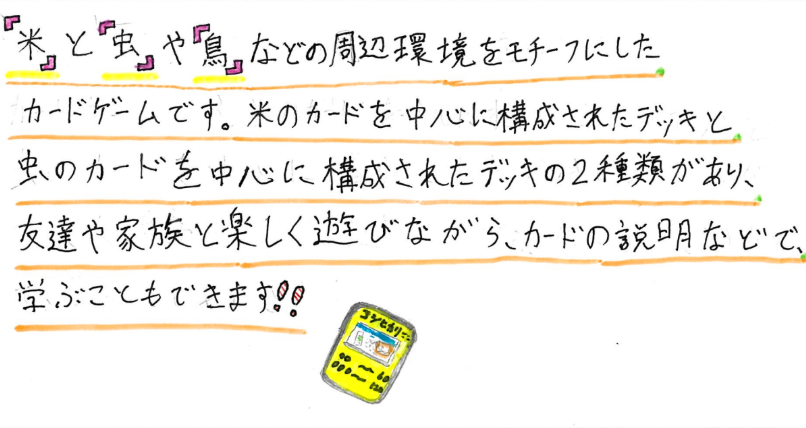 『米』と『虫』や『鳥』などの周辺環境をモチーフにした
カードゲームです。米のカードを中心に構成されたデッキと
虫のカードを中心に構成されたデッキの2種類があり、
友達や家族と楽しく遊びながら、カードの説明などで、
学ぶこともできます!!
コシヒカリ